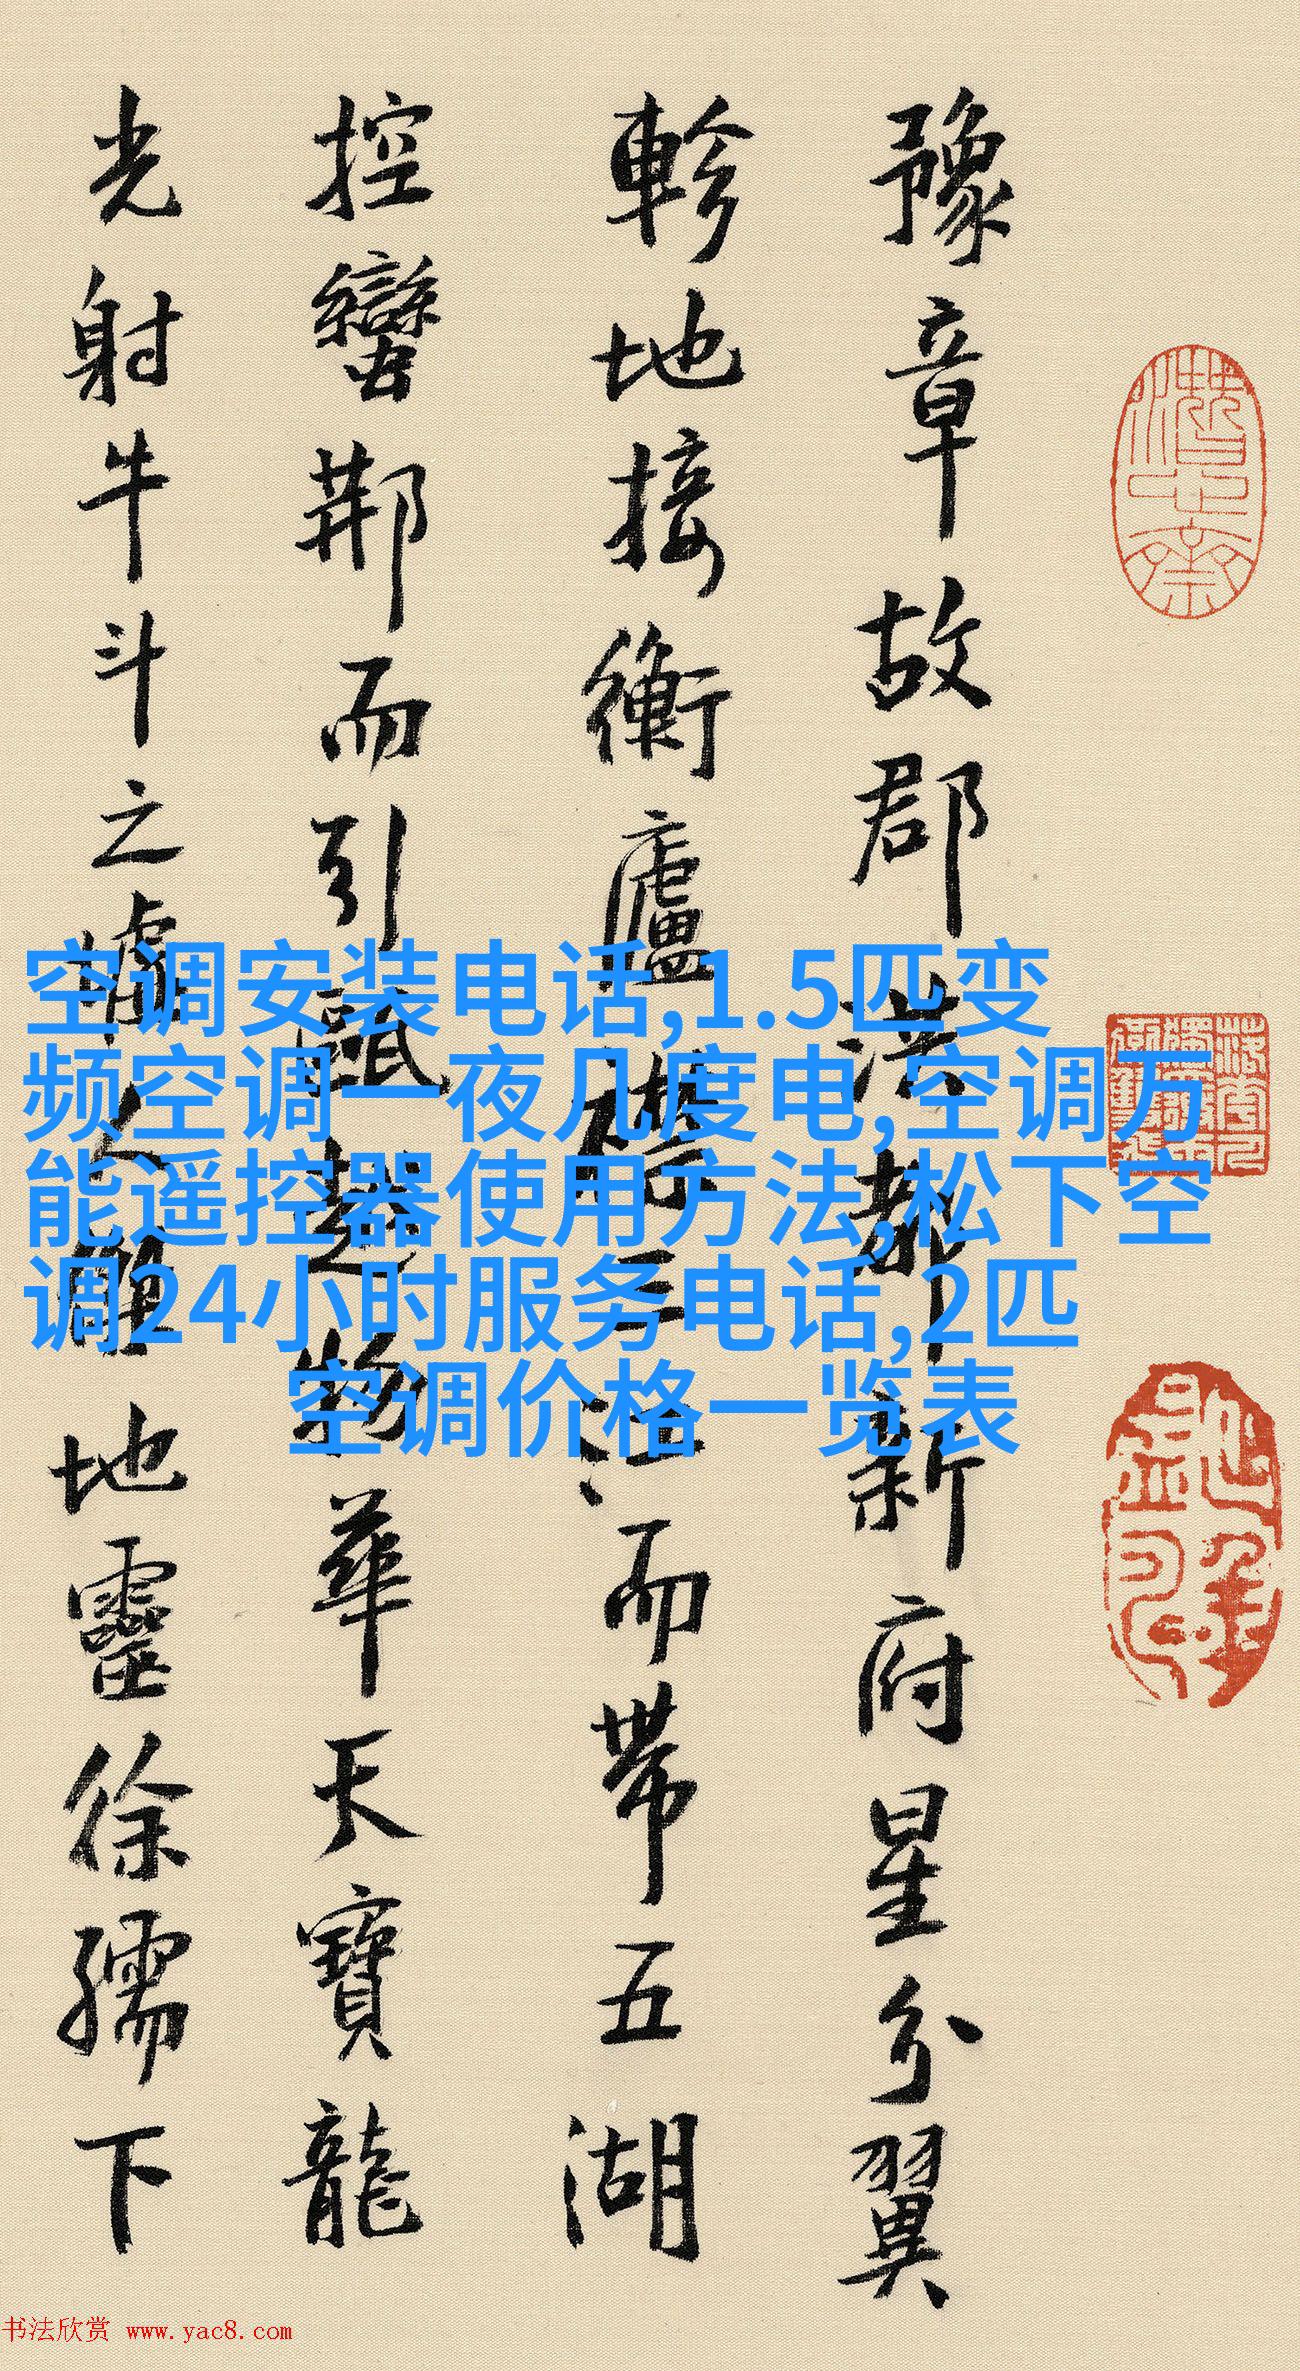 豫章故郡洪都新府星分翼
軫地接衡廬襟三江而帶五湖
控蠻荊而引甌越物華天寶龍
光射牛斗之墟人傑地靈徐孺下
空调安装电话,1.5匹变
频空调一夜几度电,空调万
能遥控器使用方法,松下空
调24小时服务电话,2匹
空调价格一览表
书法欣赏 www.yac8.com